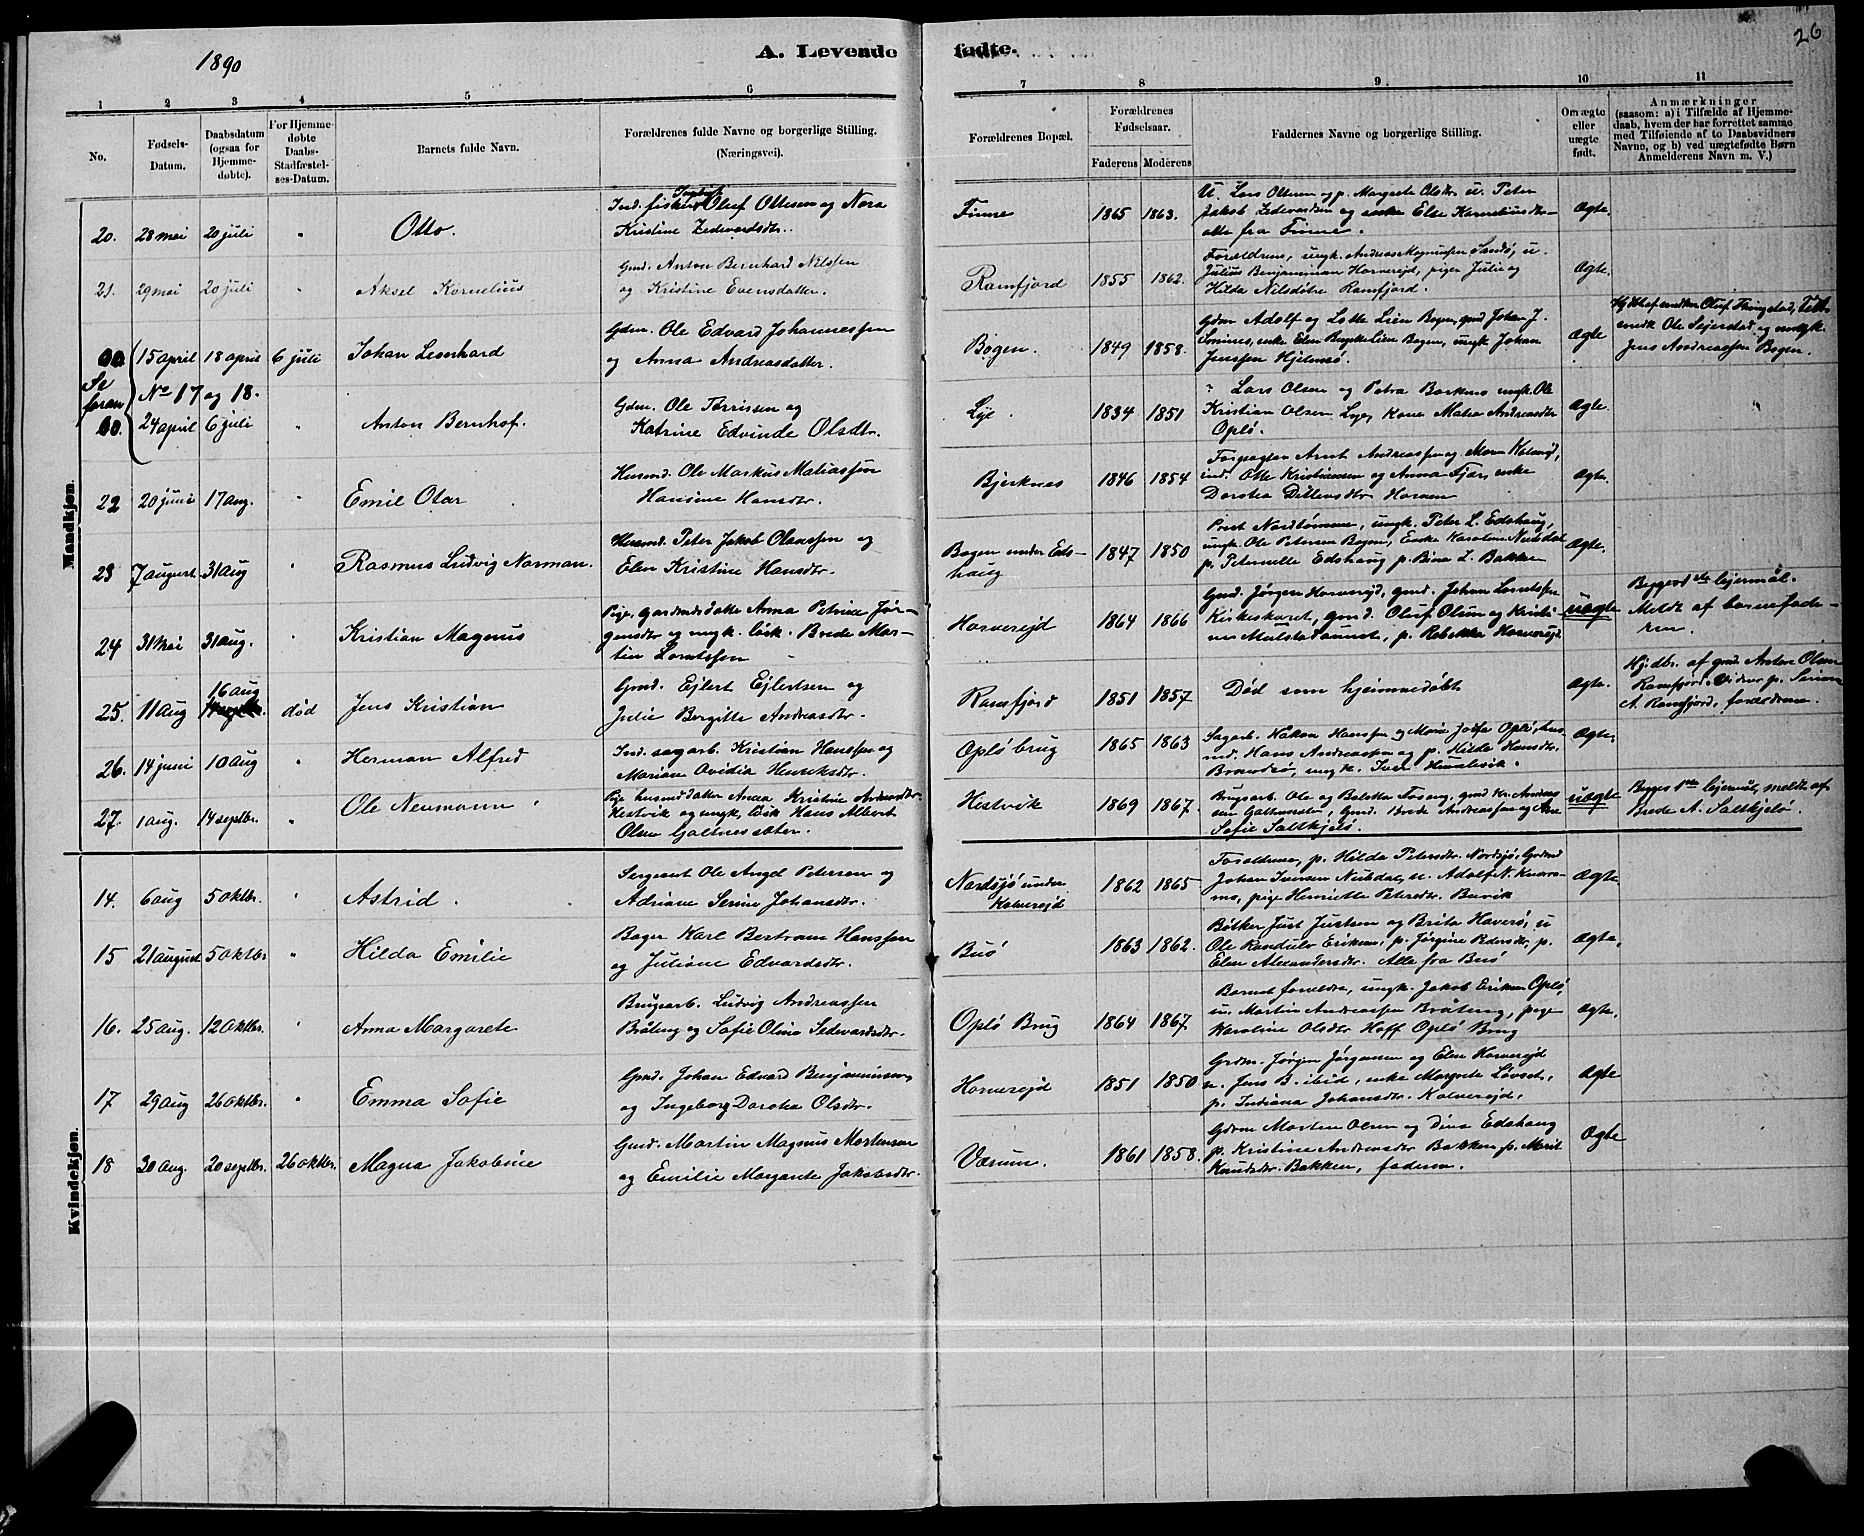 1890
A. Levende fødte.
26
1 2 3 4 5 6 7 8 9. 10 11
No.
Fødsels-Datum.
Daabsdatum (ogsaa for Hjemme-døbte).
For Hjemme-døbte Daabs-Stadfæstel-ses-Datum.
Barnets fulde Navn.
Forældrenes fulde Navne og borgerlige Stilling. (Næringsvei).
Forældrenes Bopæl.
Forældrenes Fødselsaar.
Faderens Moderens
Faddernes Navne og borgerlige Stilling.
Om ægte eller uægte født.
Anmærkninger (saasom: a) i Tilfælde af Hjemme-daab, hvem der har forrettet samme med Tilføiende af to Daabsvidners Navne, og b) ved uægtefødte Børn Anmelderens Navn m. V.)
Mandkjøn.
20. 28 mai 20 juli " Otto.
Ind. fisker Oluf Ottesen og Nora
Kristine Zedevardsdtr.
Finne 1865 1863.
U. Lars Ottesen og p. Margrete Olsdtr. u. Peter
Jakob Zedevardsen og enke Else Korneliusdtr.
alle fra Finne.
Ægte.
21. 29 mai 20 juli " Aksel Kornelius
Gmd. Anton Bernhard Nilssen
og Kristine Evensdatter.
Ramfjord 1855 1862.
Forældrene, ungk. Andreas Magnussen Sandø, u.
Julius Benjaminsen Horverejd, piger Julie og
Hilda Nilsdøtre Ramfjord.
Ægte.
15 april 18 april 6 juli Johan Leonhard
Gdm. Ole Edvard Johannessen
og Anna Andreasdatter.
Bogen. 1849 1858.
Gdm Adolf og Lotte Lien Bogen, gmd Johan J.
enke Elen Lien Bogen, ungk Johan
Jenssen Hjelmsø.
Ægte
Oluf
Ole Sejerstad og ungk.
Jens Andreassen Bogen.
Se foran No 17 og 18.
24 april 6 juli " Anton Bernhof.
Gdm. Ole Tørrissen og
Katrine Edvinde Olsdtr.
Lye. 1834 1851
" Lars Olsen og Petra Borknes ungk. Ole
Kristian Olsen Lye, Kone Matea Andreasdtr
Oplø.
Ægte.
22 20 juni 17 aug. " Emil Otar
Husmd. Ole Markus Matiassen
Hansine Hansdtr.
Bjerknes 1846 1854
Forpagter Arnt Andreassen og Maren Kolsnø,
ind. Otte Kristiansen og Anna Fjær, enke
Dorotea Ditlevsdtr Horsen
Ægte.
23 7 august 31 aug " Rasmus Ludvig Norman.
Husmd. Peter Jakob Olaussen og
Elen Kristine Hansdtr.
Bogen under Eds-
haug
1847 1850
Prest Nordtømme, ungk. Peter L. Edshaug,
ungk. Ole Petersen Bogen, Enke Karoline Neusdal
p. Peternelle Edshaug p. Bina L. Bakken
Ægte.
24 31 mai 31 aug. " Kristian Magnus
Pige, gaardmdsdatter Anna Petrine Jør-
gensdtr og ungk. løsk. Brede Mar-
tin Lorntssen
Horverejd 1864 1866
Gmd. Jørgen Horverejd, gmd. Johan Lorntssen
Kirkeskaret, gmd. Oluf Olsen og Kristi-
ne p. Rebekka Horverejd.
uægte
Begges lejermål.
Meldt af barnefade-
ren.
25. 11 aug 16 aug død Jens Kristian
Gmd. Ejlert Ejlertsen og
Julie Bergitte Andreasdtr.
Ramfjord 1851 1857
Død som hjemmedøbt
Ægte.
Hj.dbt. af gmd. Anton Olsen
Ramfjord. Vidner p. Serine
A. Ramfjord, forældrene.
26. 14 juni 10 aug " Herman Alfred
Ind. sagarb. Kristian Hanssen og
Marian Ovidia Henriksdtr.
Oplø brug 1865 1863
Sagarb. Håkon Hanssen og Marie Oplø, hus-
md. Hans Andreassen og p. Hilda Hansdtr.
Brandsø, ungk. Iver
Ægte.
27. 1 aug. 14 septbr. Ole Neumann
Pige husmddatter Anna Kristine Andreasdtr
Hestvik og ungk. løsk Hans Albert
Olsen Galtnessæter.
Hestvik 1869 1867.
Brugsarb. Ole og Beletta gmd Kr. Andreas-
sen gmd. Brede Andreassen og
Sofie Saltkjelø.
uægte
Begges 1ste lejermål, meldt af
Brede A. Saltkjelø.
Kvindekjøn.
14. 6 aug 5 oktbr. " Astrid.
Sergeant Ole Angel Petersen og
Adriane Serine Johansdtr.
Nordsjø under
Kolverejd
1862 1865
Forældrene, p. Hilda Petersdtr. Nordsjø, Grdmd
Johan Iversen Neusdal, u. Adolf N.
pige Henriette Petersdtr. Buvik
Ægte.
15 21 august 5 oktbr " Hilda Emilie
Bager Karl Bertram Hanssen
og Juliane Edvardsdtr.
Buø 1863 1862.
Bøtker Just Justsen og Brita Haverø, u
Ole Randulv Eriksen, p. Jørgine Pedersdtr, p.
Elen Alexandersdtr. Alle fra Buø
Ægte.
16. 25 aug. 12 oktbr. " Anna Margarete
Brugsarb. Ludvig Andreassen
Bråteng og Sofie Olina Sedevardsdtr.
Oplø Brug 1864 1867
Barnets forældre, ungk. Jakob Eriksen Oplø,
u. Martin Andreassen Bråteng, pige
Karoline Olsdtr Hoff Oplø Brug
Ægte.
17 29 aug 26 oktbr. " Emma Sofie
Gmd. Johan Edvard Benjaminsen
og Ingeborg Dorotea Olsdtr.
Horverejd 1851 1850
Grdm. Jørgen Jørgensen og Elen Horverejd
u. Jens B. ibid, enke Margrete Løvset,
p. Indiana Johansdtr. Kolverejd.
Ægte
18 30 aug. 20 septbr. 26 oktbr. Magna Jakobine
Gmd. Martin Magnus Mortensen
og Emilie Margrete Jakobsdtr.
Værum. 1861 1858.
Gdm Morten Olsen og Dina Edshaug
p. Kristine Andreasdtr Bakken p. Marit
Knudsdtr. Bakken, faderen.
Ægte